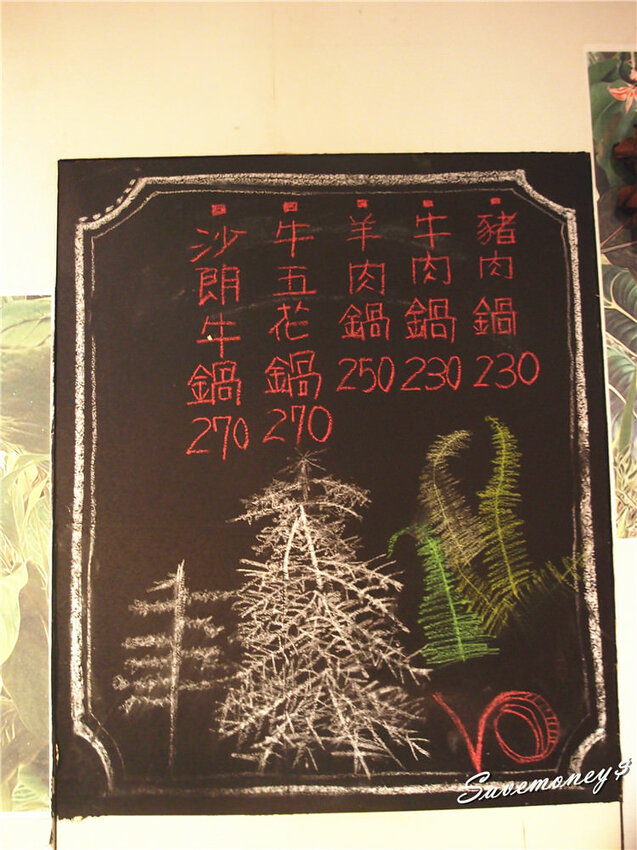 豬肉鍋230
牛肉鍋230
羊肉鍋250
牛五花鍋270
沙朗牛鍋270
VO
Savemoney$